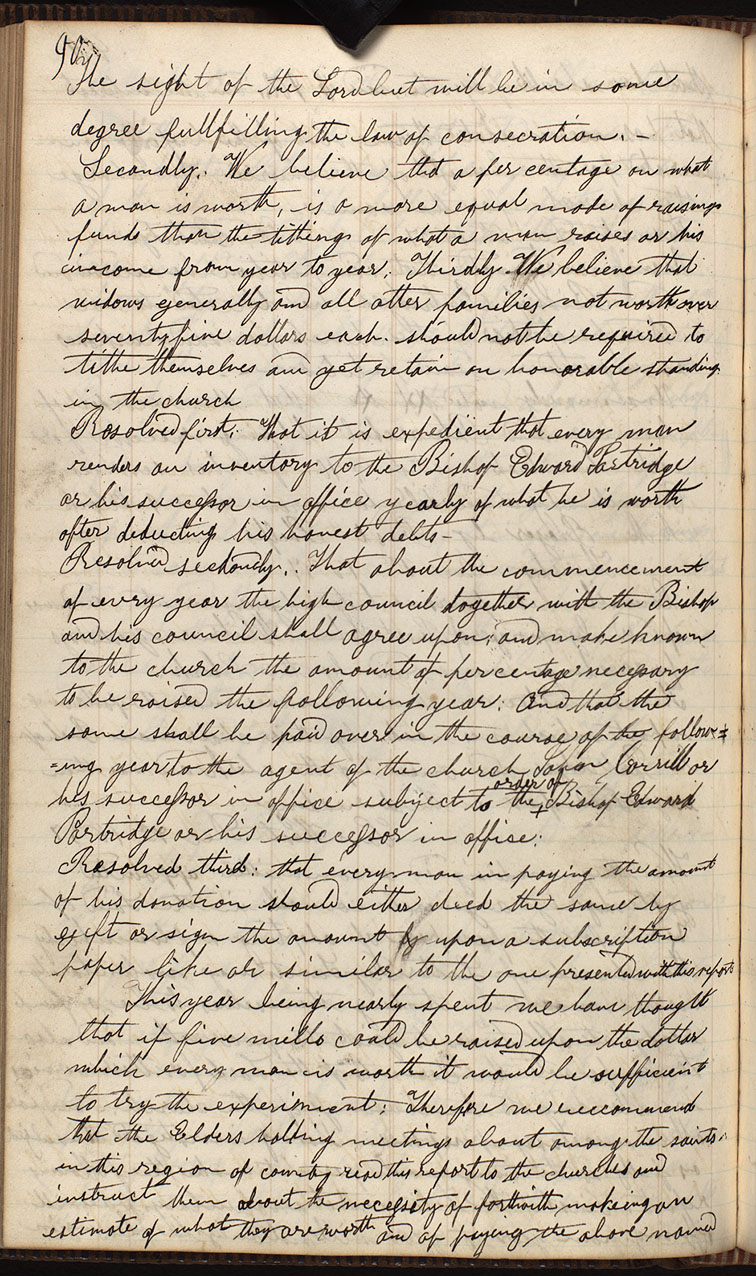 90
in
The sight of the Lord but will be in some
degree fullfilling the law of consecration. –
Secondly. We believe that a per centage on what
a man is worth, is a more equal mode of raising
funds than the tithing of what a man raises or his
income from year to year. Thirdly We believe that
widows generally and all other families not worth over
seventyfive dollars each. should not be required to
tithe themselves and yet retain an honorable standing
in the church
Resolved first; That it is expedient that every man
renders an inventory to the Bishop Edward Partridge
or his successor in office yearly of what he is worth
after deducting his honest debts –
Resolved secdondly.. That about the commencement
of every year the high council dogether with the Bishop
and his council shall agree upon; and make known
to the church the amount of per centage necessary
to be raised the following year: And that the
same shall be paid over in the course of the follow=
=ing year to the agent of the church John Corrill or
order of
his successor in office subject to the + Bishop Edward
Partridge or his successor in office:
Resolved third: that every man in paying the amount
of his donation should either deed the same by
gift or sign the amount upon a subscription
paper like or similar to the one presented with this report
This year being nearly spent we have thought
that if five mills could be raised upon the dollar
which every man is worth it would be sufficient
to try the experiment; Therefore we reccommend
that the Elders holding meetings about among the saints
in this region of country read this report to the churches and
instruct them about the necessity of forthwith makeing an
estimate of what they are worth and of paying the above named